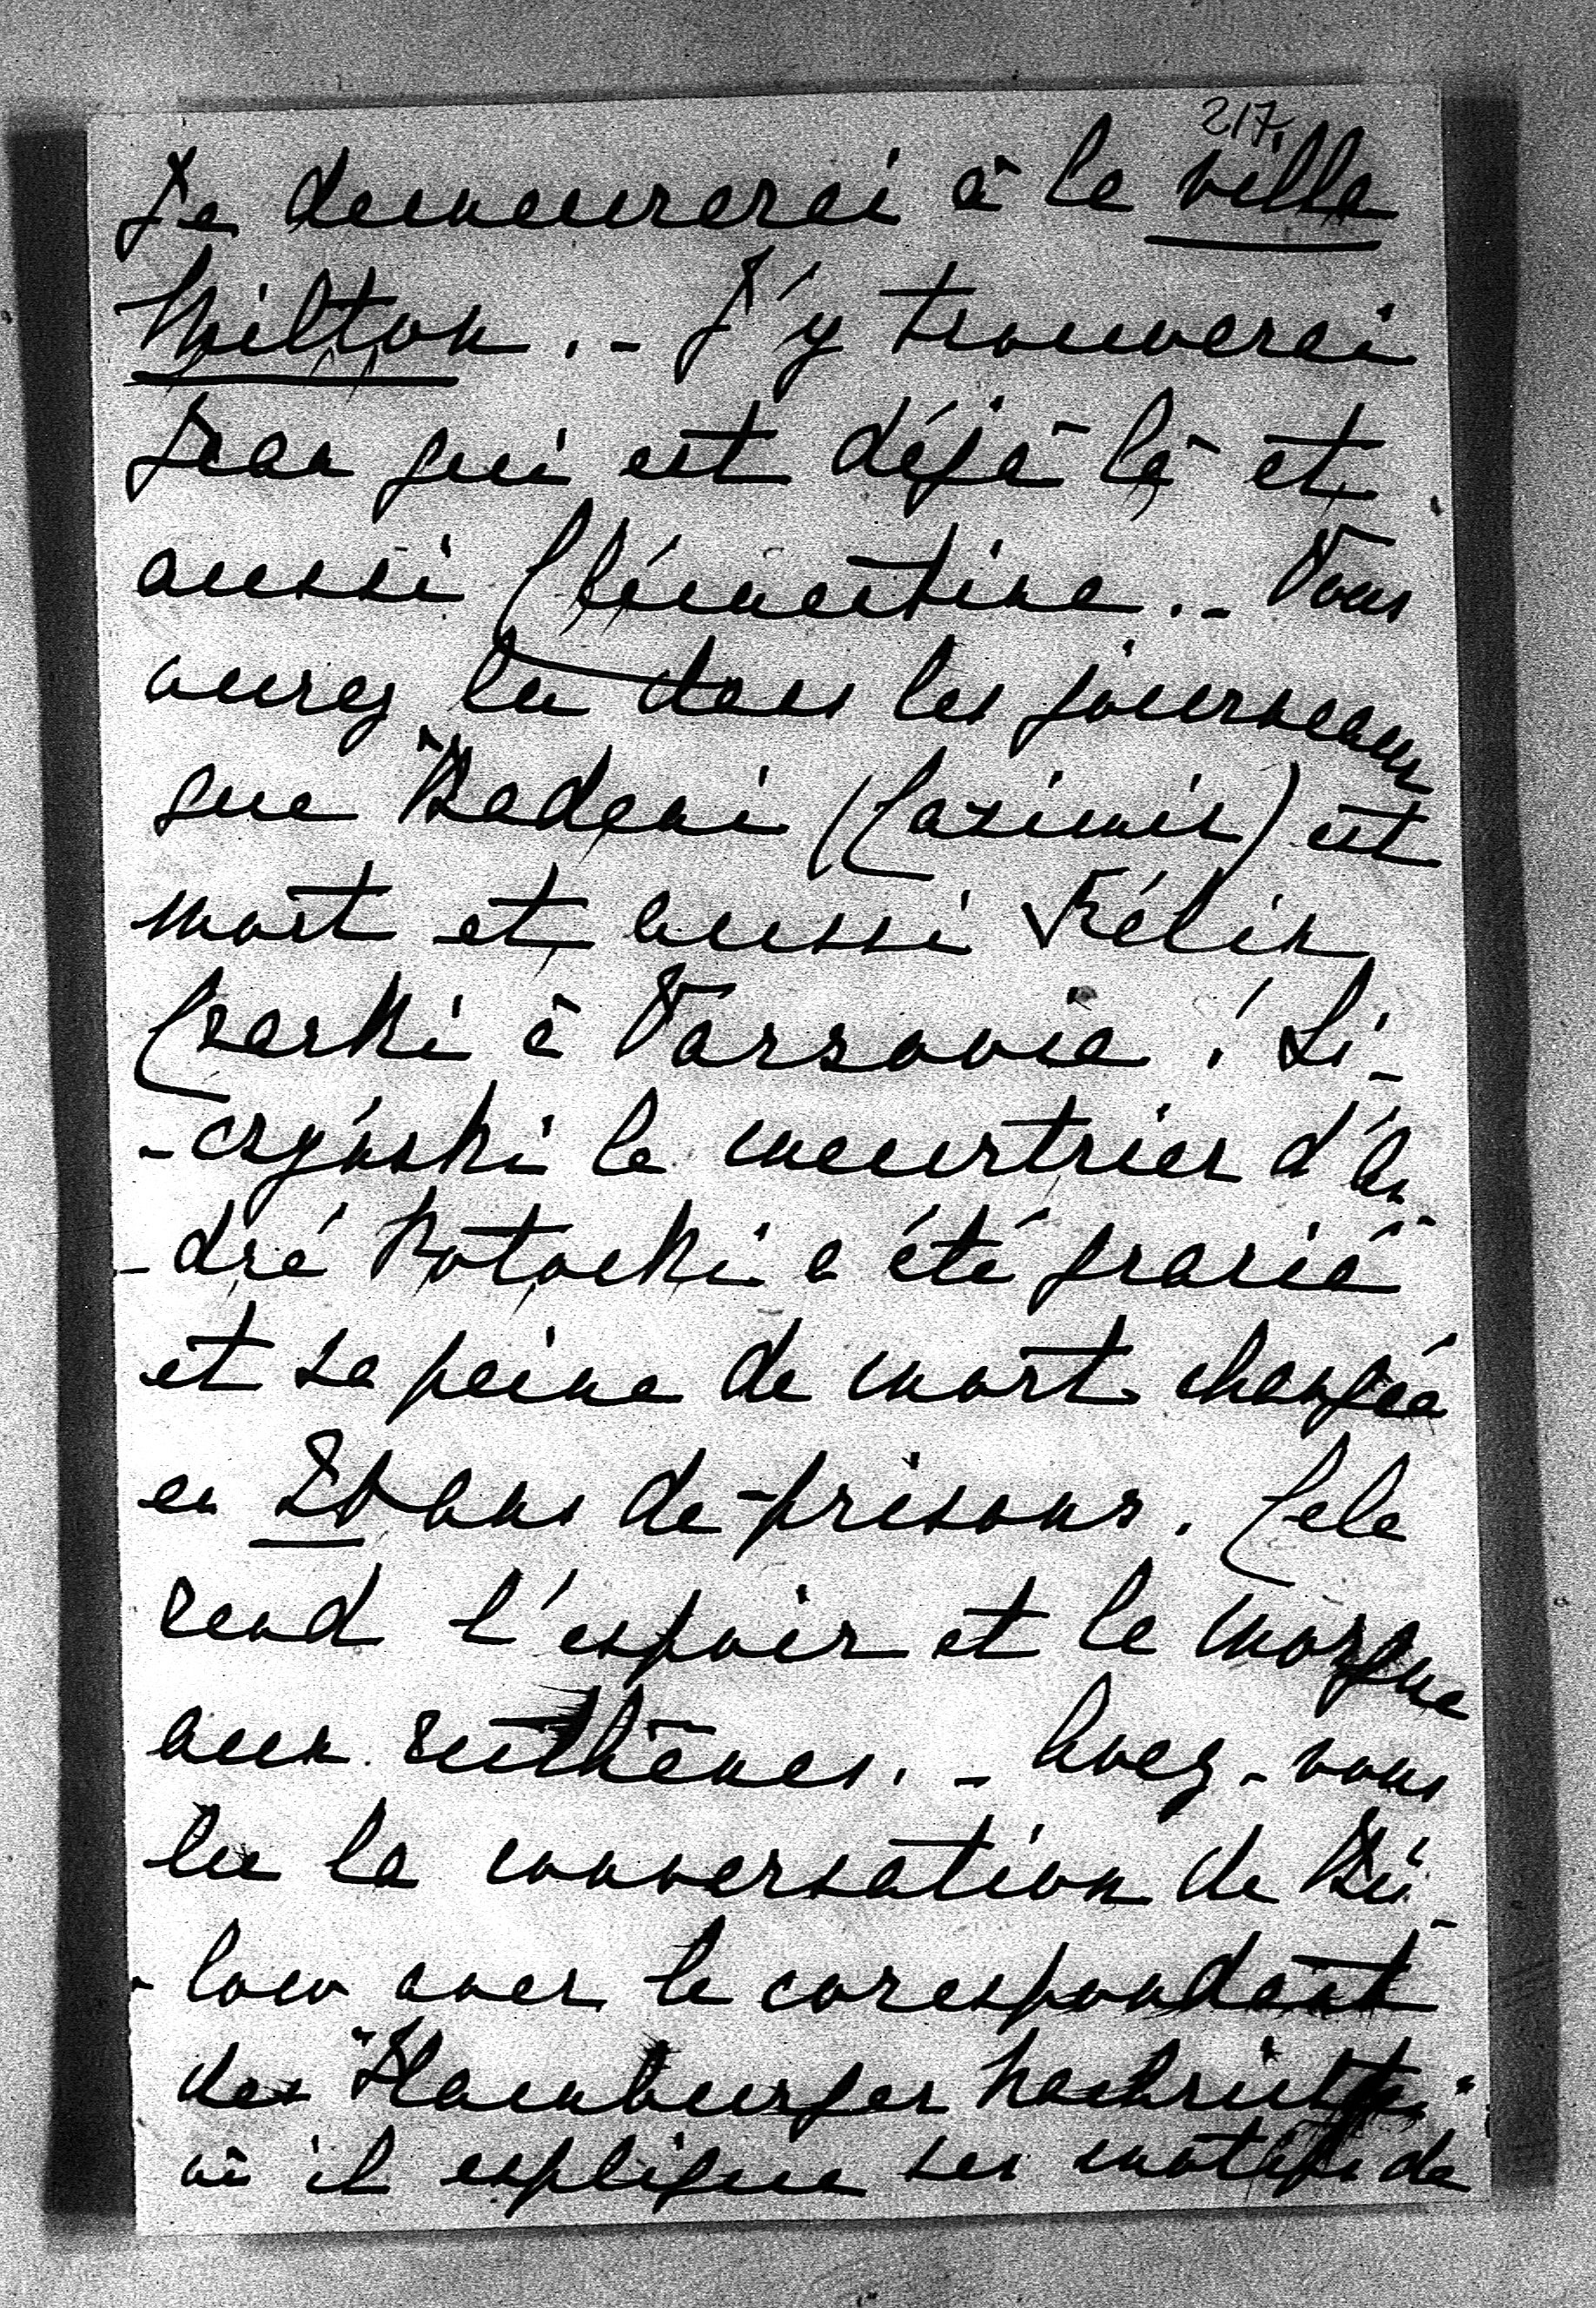 217
Je demeurerai à la villa
Milton. - J'y trouverai
Jean qui est déjà là et
aussi Clémentine. - Vous
aurez lu dans les journaux
que Badeni (Casimir) est
mort et aussi Félix
Czacki à Varsovie! Si-
-czyński le meurtrier d'An-
-dré Potocki a été gracié
et sa peine de mort changée
en 20 ans de prisons. Cela
rend l'espoir et la morgue
aux ruthènes. - Avez-vous
lu la conversation de Bü-
-low avec le corespondant
des "Hamburger Nachrichten"
où il explique ses motifs de